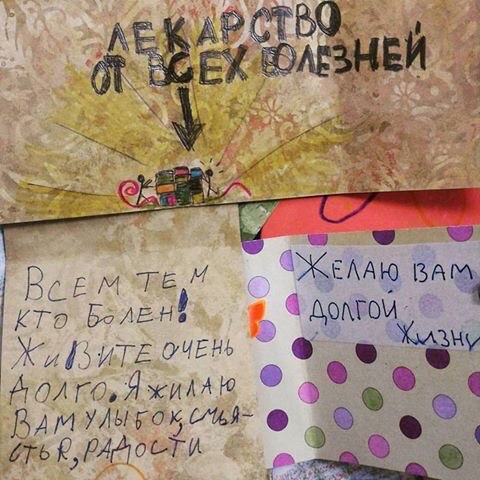 ЛЕКАРСТВО
ОТ ВСЕХ БОЛЕЗНЕЙ
ВСЕМ ТЕМ
КТО БОЛЕН!
ЖИВИТЕ ОЧЕНЬ
ДОЛГО. Я ЖИЛАЮ
ВАМ УЛЫБОК, СМЬЯ-
СТЬЯ, РАДОСТИ
ЖЕЛАЮ ВАМ
ДОЛГОЙ
ЖИЗНИ